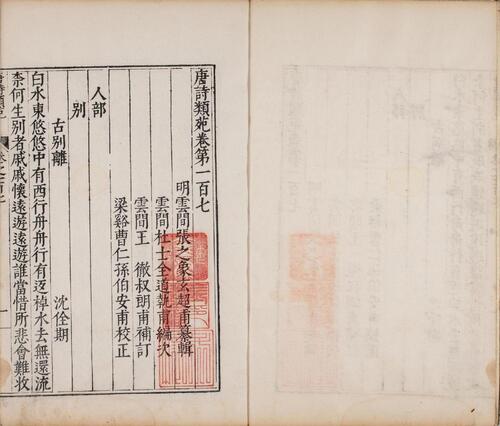 唐詩類苑卷第一百七
明雲間張之象玄超甫纂輯
雲間杜士全道執甫編次
雲間王徹叔朗甫補訂
梁谿曹仁孫伯安甫校正
人部
別
古別離
沈佺期
白水東悠悠中有西行舟舟行有返棹水去無還流
柰何生別者戚戚懷遠遊遠遊誰當惜所悲會難收